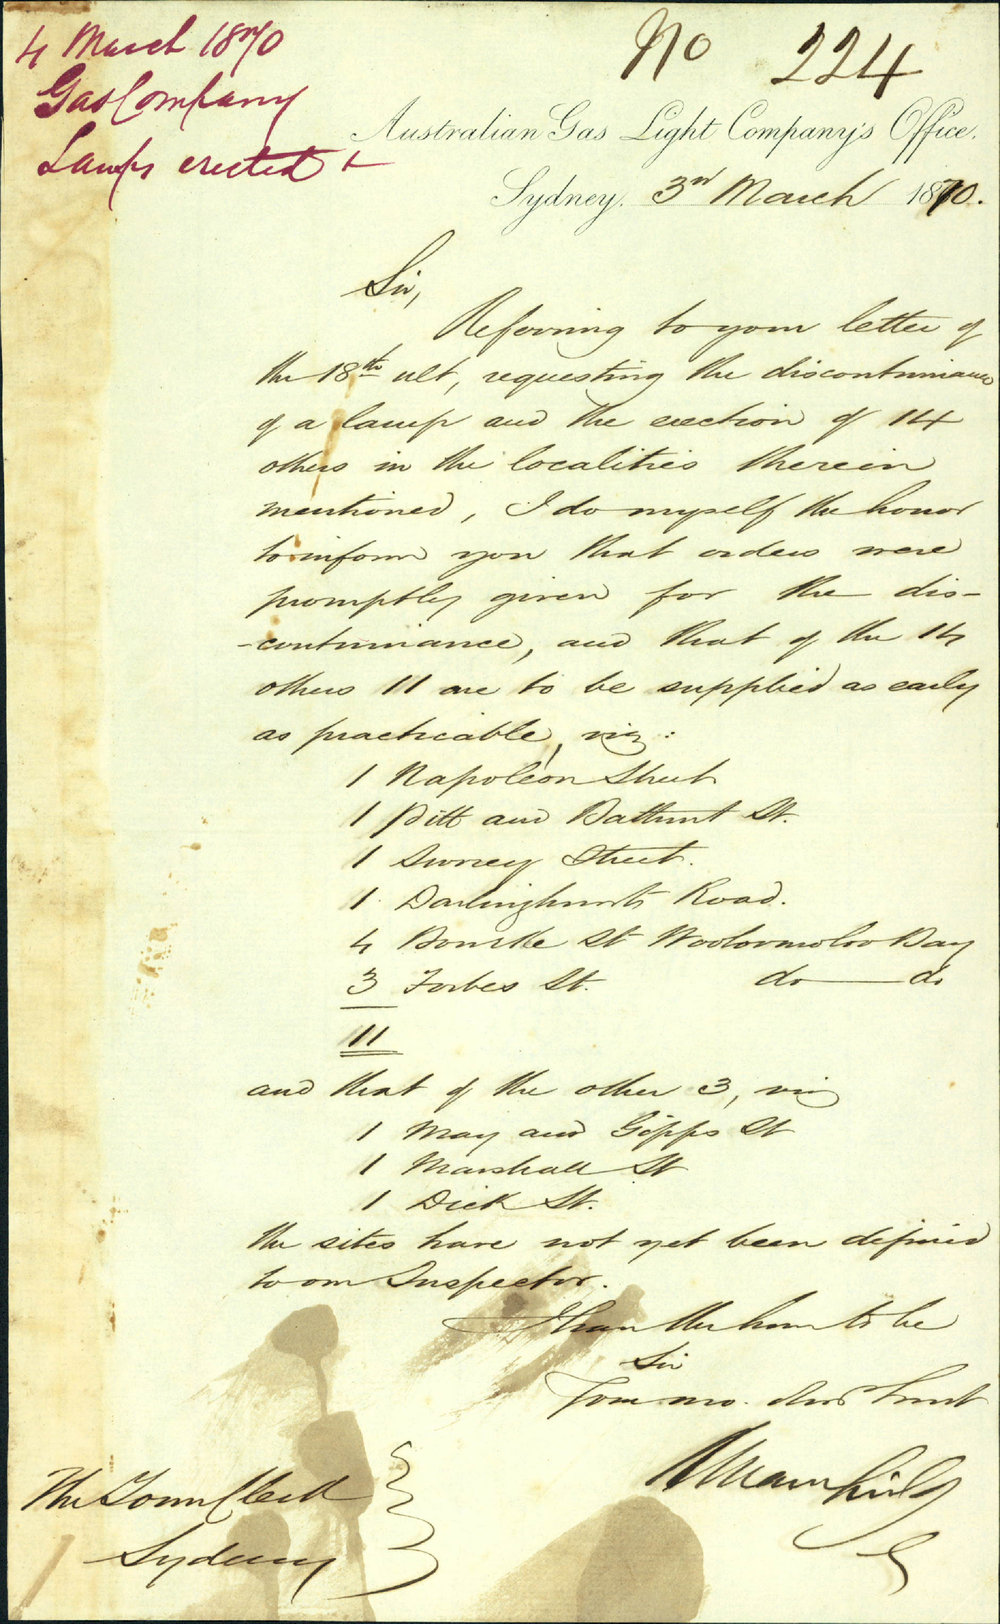 4 March 1870
Gas Company
Lamps erected +
No 224
Australian Gas Light Company's Office,
Sydney, 3rd March 1870.
Sir,
Referring to your letter of
the 18th ult, requesting the discontinuance
of a lamp and the erection of 14
others in the localities therein
mentioned, I do myself the honor
to inform you that orders were
promptly given for the dis-
-continuance, and that of the 14
others 11 are to be supplied as early
as practicable, viz:
1 Napoleon Street
1 Pitt and Bathurst St.
1 Surrey Street.
1 Darlinghurst Road.
4 Bourke St Wooloomooloo Bay
3 Forbes St. do do
11
and that of the other 3, viz
1 May and Gipps St
1 Marshall St
1 Dick St.
the sites have not yet been defined
to our Inspector.
I have the honor to be
Sir
Your mo. Obdt Servt
The Town Clerk
Sydney